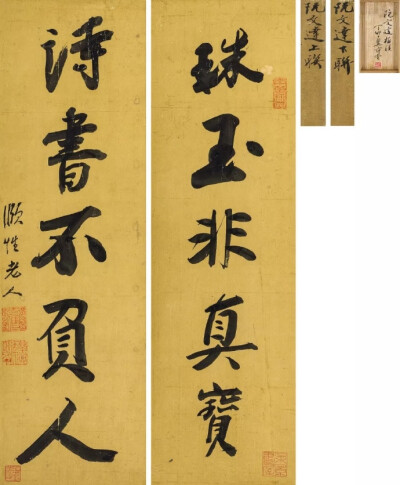 珠玉非真寶
詩書不負人
頤性老人
阮文達上聯
阮文達下聯